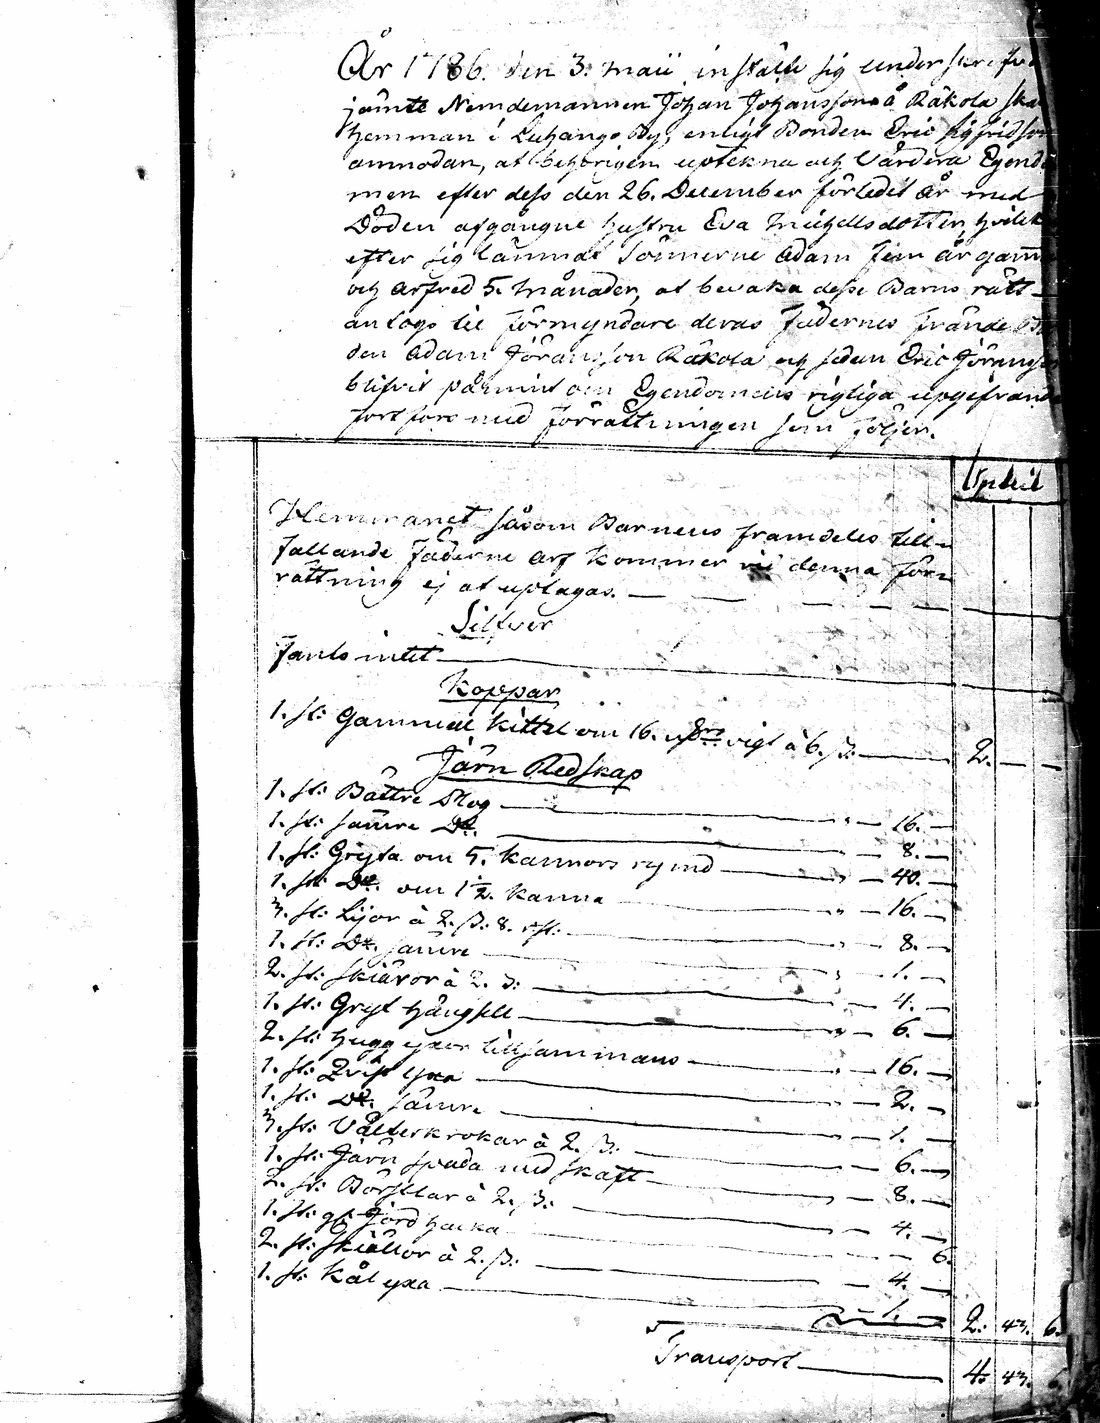 År 1786. den 3. Maii instälte sig underskrefne
jämte Nämdemannen Johan Johansson å Räkola
hemman i Luhango By, enligt Bonden Eric Sigfridsson
anmodan, at behörigen uptekna och Värdera Egendo
men efter dess den 26. December förledit år med
Döden afgångne hustru Eva Michelsdotter, hvilken
efter sig lämnat Sönnerne Adam Fem år gammal
och Arfred 5. Månader, at bevaka desse Barns rätt
antogs til förmyndare deras Fädernes frände
den Adam Jöransson Räkola och sedan Eric Jöransson
blifvit påmint om Egendomens rigtiga upgifvande
fortfors med förrättningen som följer.
Hemmanet såsom Barnens framdeles till-
fallande Fäderne arf kommer vid denna förr
rättning ej at uptagas.
Silfver
Fants intet
Koppar
1. st: Gammal Kittel om 16. vigt à 6. ß. 2. — —
Järn Redskap
1. st: Bättre Plog " — 16. —
1. st: sämre Do. " — 8. —
1. st: Gryta om 5. kannors rymd " — 40. —
1. st: Do. om 1 1/2. Kanna " — 16. —
3. st: Lijor à 2. ß. 8. rst. " — 8. —
1. st: Do. sämre " — 1. —
2. st: Skiäror à 2. ß: " — 4. —
1. st: Gryt hängsle " — 6. —
2. st: hugg yxor tillsammans " — 16. —
1. st: yxa — 2. —
1. st: Do. sämre — 1. —
3. st: Vålterkrokar à 2. ß. — 6. —
1. st: Järn spada med skaft — 8. —
2. st: à 2. ß. — 4. —
1. st: gl: Jord hacka — 6.
2. st: Skiällor à 2. ß. — 4. —
1. st: Kål yxa — 1. — 2. 43. 6.
Transport 4. 43. 6.